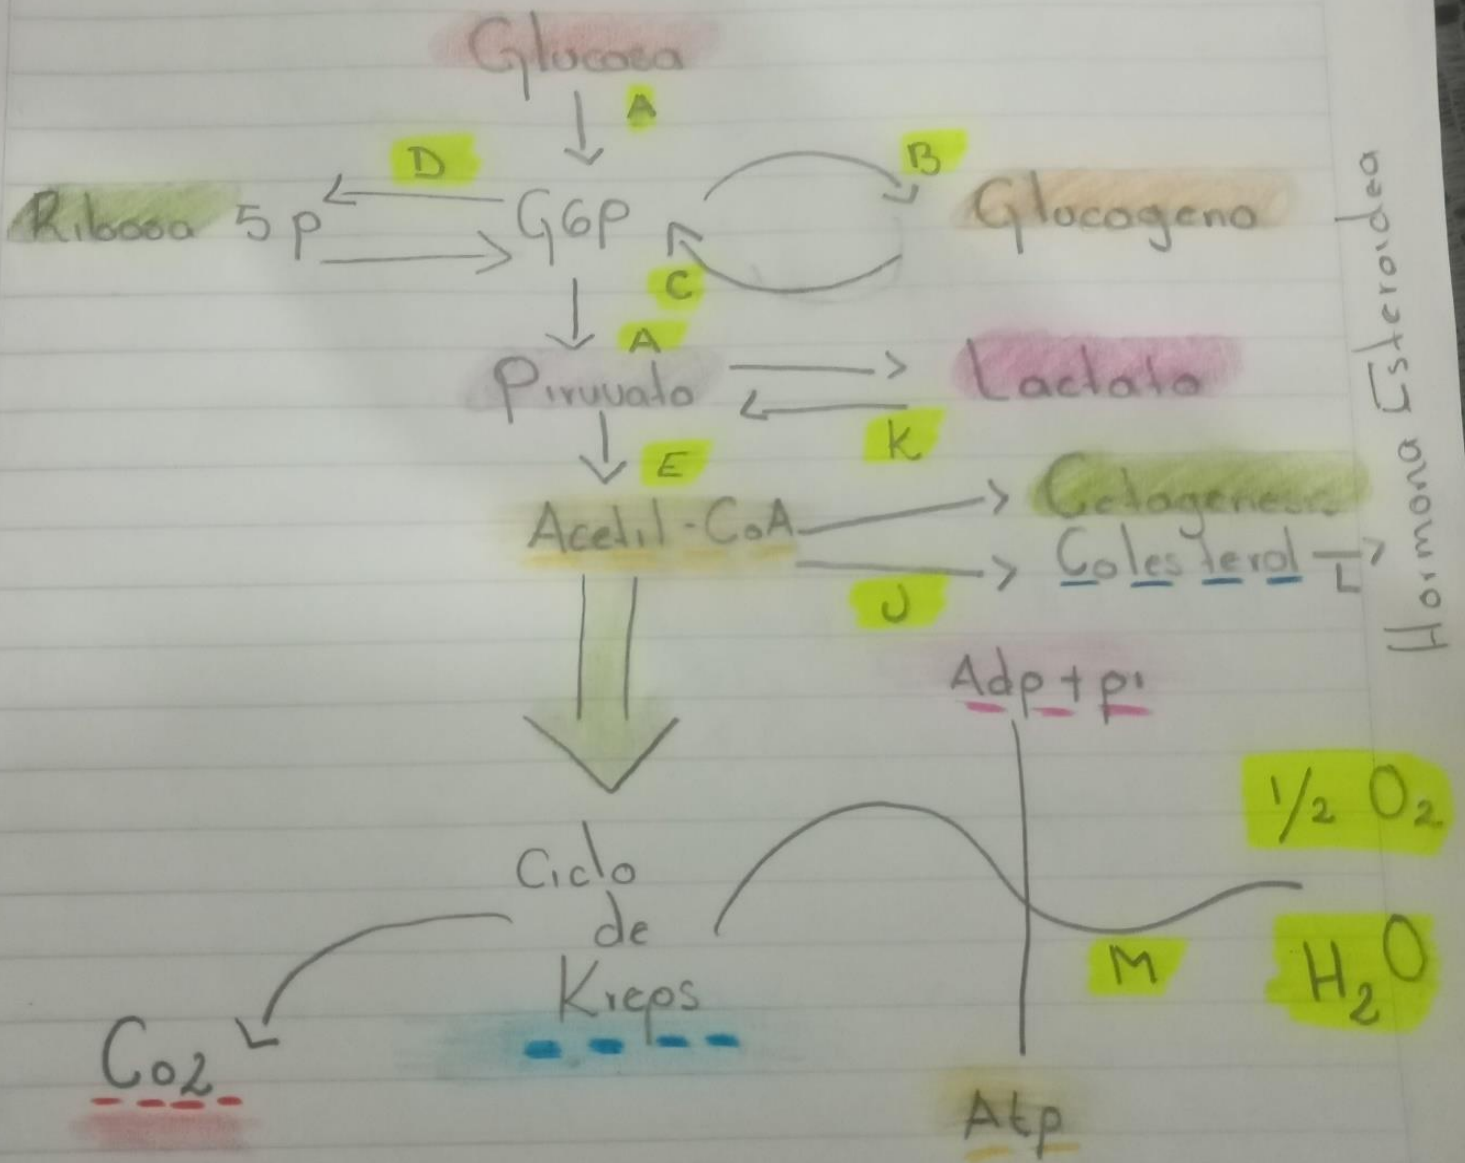 Glucosa
A
D
B
Ribosa 5p
G6P
Glucogeno
C
A
Piruvato
Lactato
K
E
Acetil-CoA
Cetogenesis
Colesterol
Hormona Esteroidea
J
Adp + pi
1/2 O2
Ciclo
de
Kreps
M
H2O
Co2
Atp